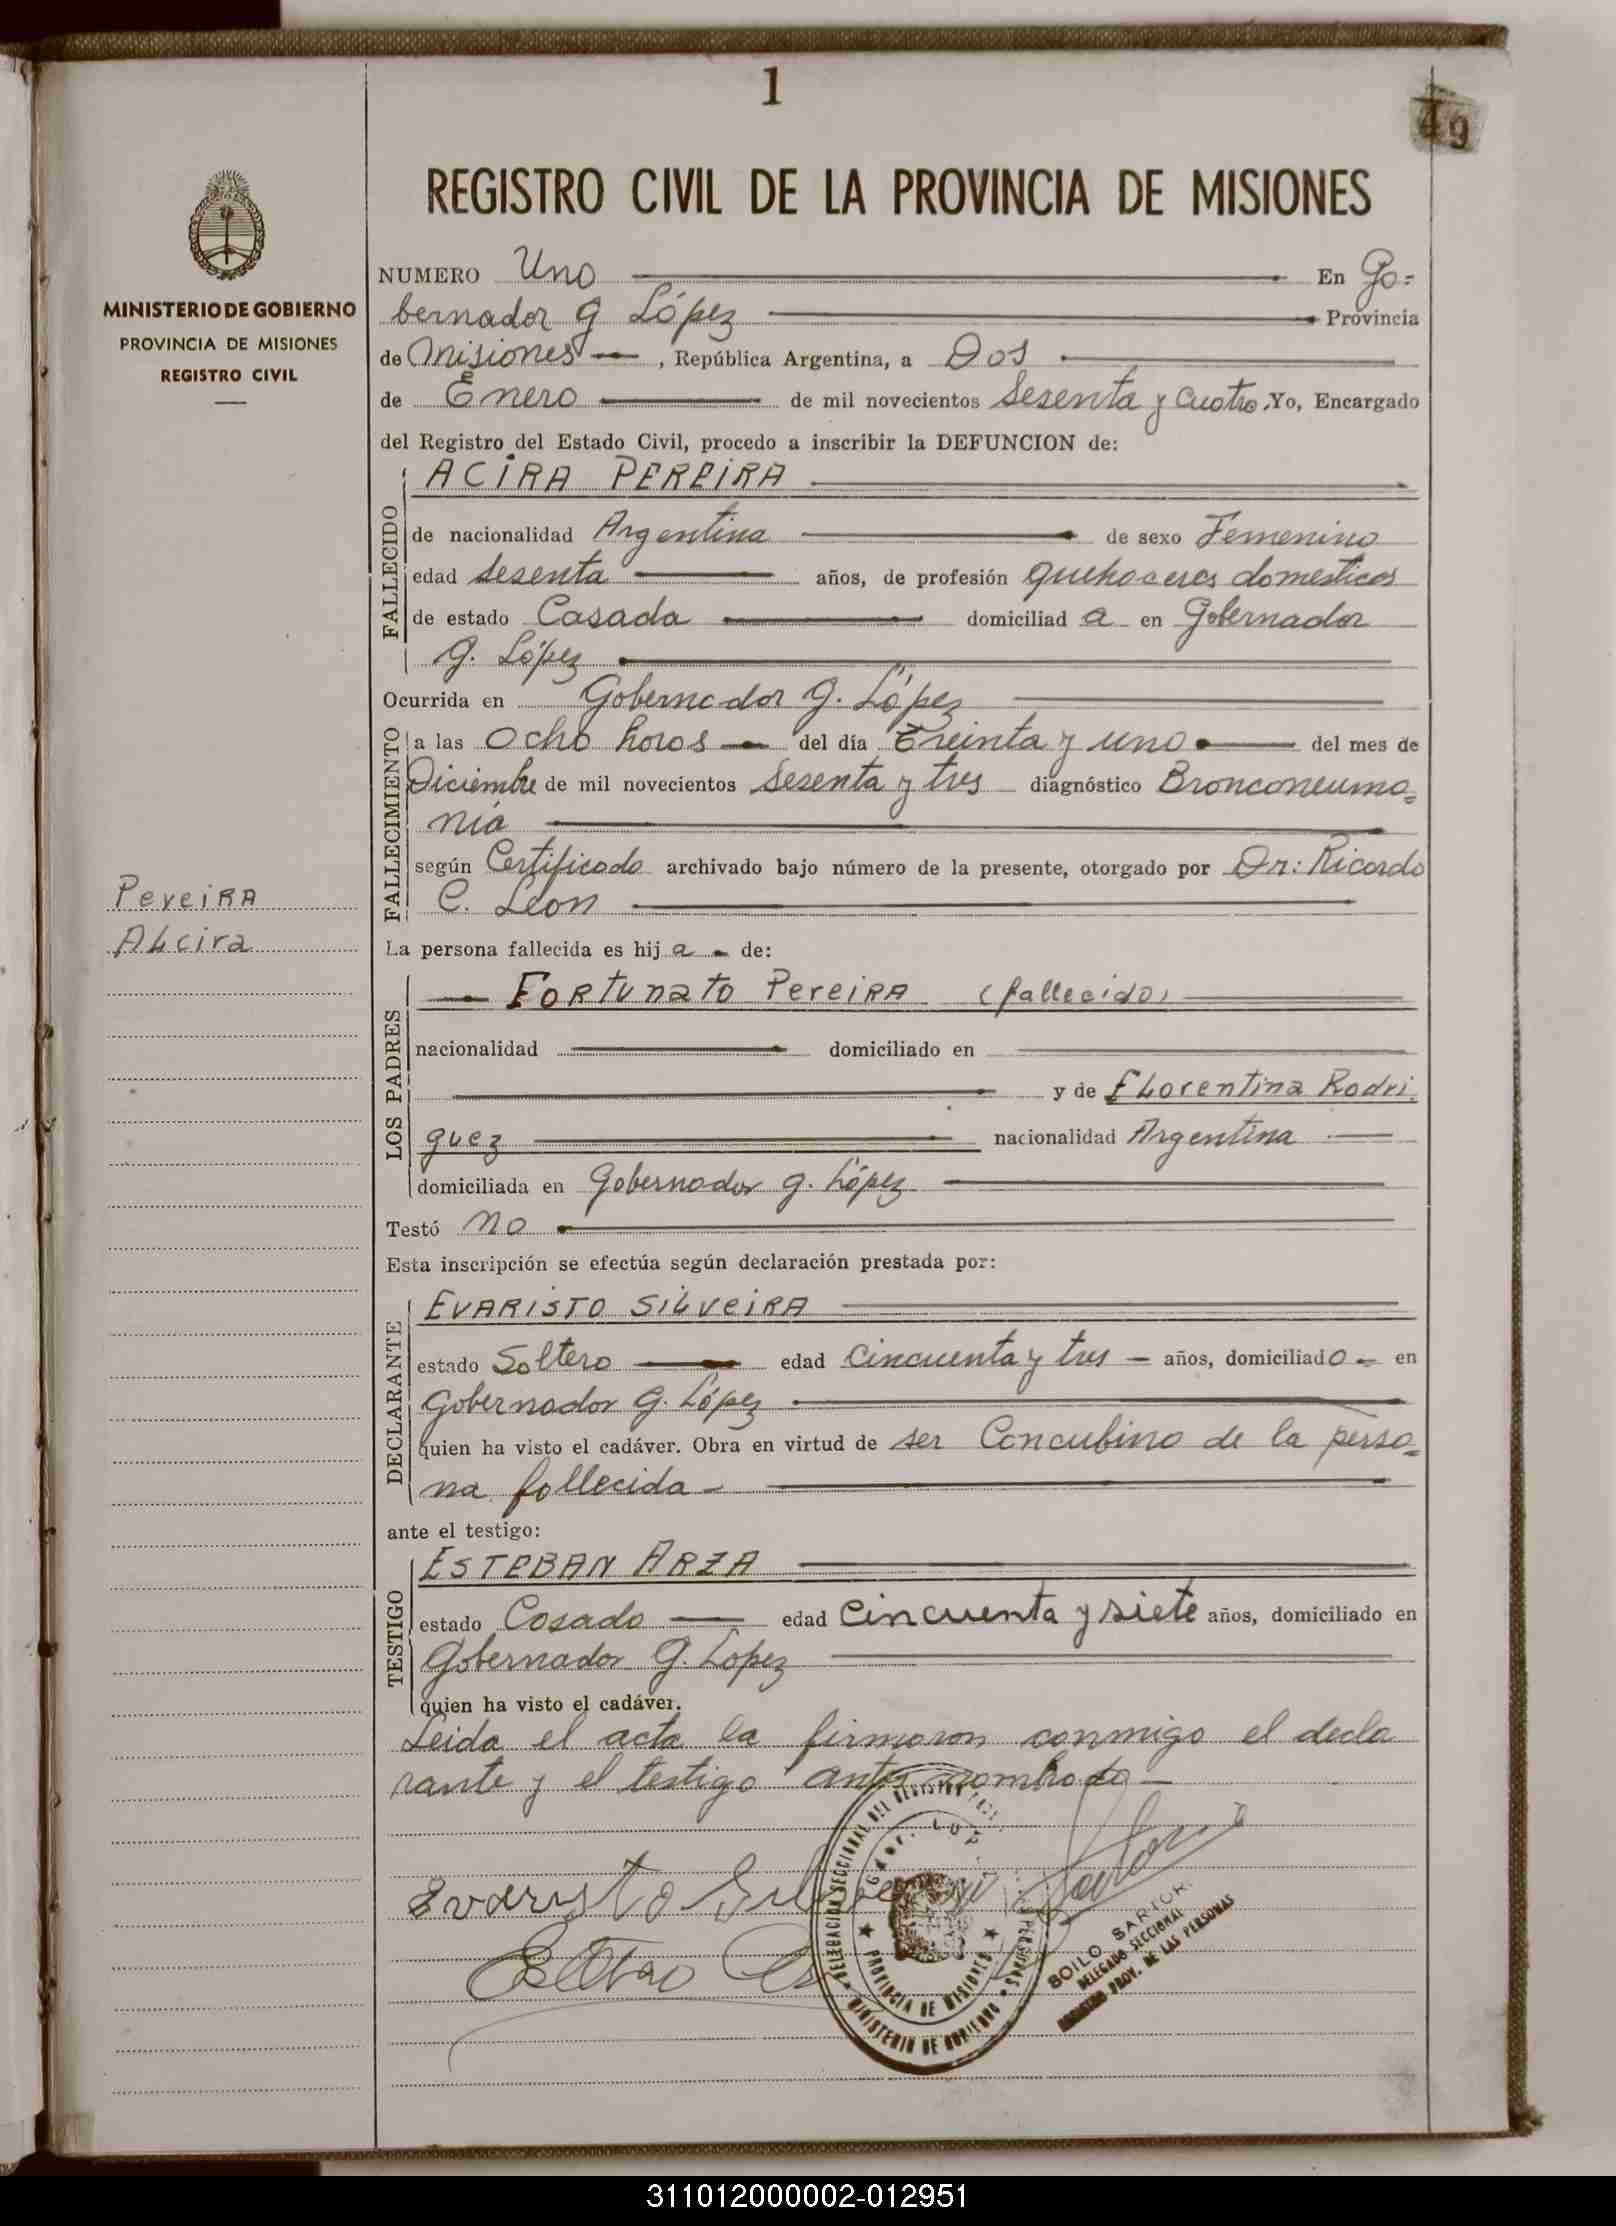 1
49
REGISTRO CIVIL DE LA PROVINCIA DE MISIONES
MINISTERIO DE GOBIERNO
PROVINCIA DE MISIONES
REGISTRO CIVIL
NUMERO Uno En Go=
bernador G López Provincia
de Misiones, República Argentina, a Dos
de Enero de mil novecientos Sesenta y Cuatro. Yo, Encargado
del Registro del Estado Civil, procedo a inscribir la DEFUNCION de:
FALLECIDO
ACIRA PEREIRA
de nacionalidad Argentina de sexo Femenino
edad Sesenta años, de profesión quehaceres domesticos
de estado Casada domiciliad a en Gobernador
G. López
Ocurrida en Gobernador G. López
FALLECIMIENTO
a las Ocho horas del día Treinta y uno del mes de
Diciembre de mil novecientos Sesenta y tres diagnóstico Bronconeumo=
nia
según Certificado archivado bajo número de la presente, otorgado por Dr: Ricardo
C. Leon
Pereira
Alcira
La persona fallecida es hij a de:
LOS PADRES
Fortunato Pereira (fallecido)
nacionalidad domiciliado en
y de Florentina Rodri
guez nacionalidad Argentina
domiciliada en Gobernador G. López
Testó no
Esta inscripción se efectúa según declaración prestada por:
DECLARANTE
EVARISTO SILVEIRA
estado Soltero edad Cincuenta y tres años, domiciliado en
Gobernador G. López
quien ha visto el cadáver. Obra en virtud de ser Concubino de la perso=
na fallecida
ante el testigo:
TESTIGO
ESTEBAN ARZA
estado Casado edad Cincuenta y siete años, domiciliado en
Gobernador G. Lopez
quien ha visto el cadáver.
Leida el acta la firmaron conmigo el decla
rante y el testigo antes nombrado
Evaristo Silveira
DELEGACION SECCIONAL DEL REGISTRO
PROVINCIA DE MISIONES
MINISTERIO DE GOBIERNO
BOILO SARTORI
DELEGADO SECCIONAL
PROV. DE LAS PERSONAS
311012000002-012951